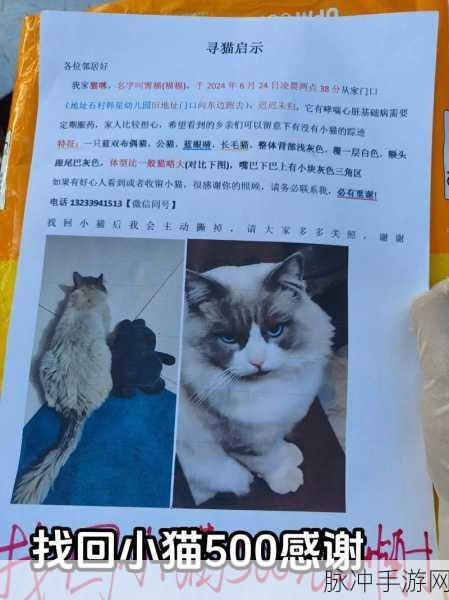 寻猫启示
各位邻居好
我家猫咪，名字叫雪顿(福福)，于 2024 年 6 月 24 日凌晨两点 38 分从家门口
（地址石村韩星幼儿园旧地址门口向东边跑去），迟迟未归，它有哮喘心脏基础病需要
定期服药，家人比较担心，希望看到的乡亲们可以留意下有没有小猫的踪迹
特征：一只蓝双布偶猫，公猫，蓝眼睛，长毛猫，整体背部浅灰色，覆一层白色，额头
跟尾巴灰色，体型比一般猫略大(对比下图)，嘴巴下巴上有小块灰色三角区
如果有好心人看到或者收留小猫，很感谢你的照顾，请务必联系我，必有重谢!
电话 13233941513【微信同号】
找回小猫后我会主动撕掉，请大家多多关照，谢谢
找回小猫500感谢
脉冲手游网